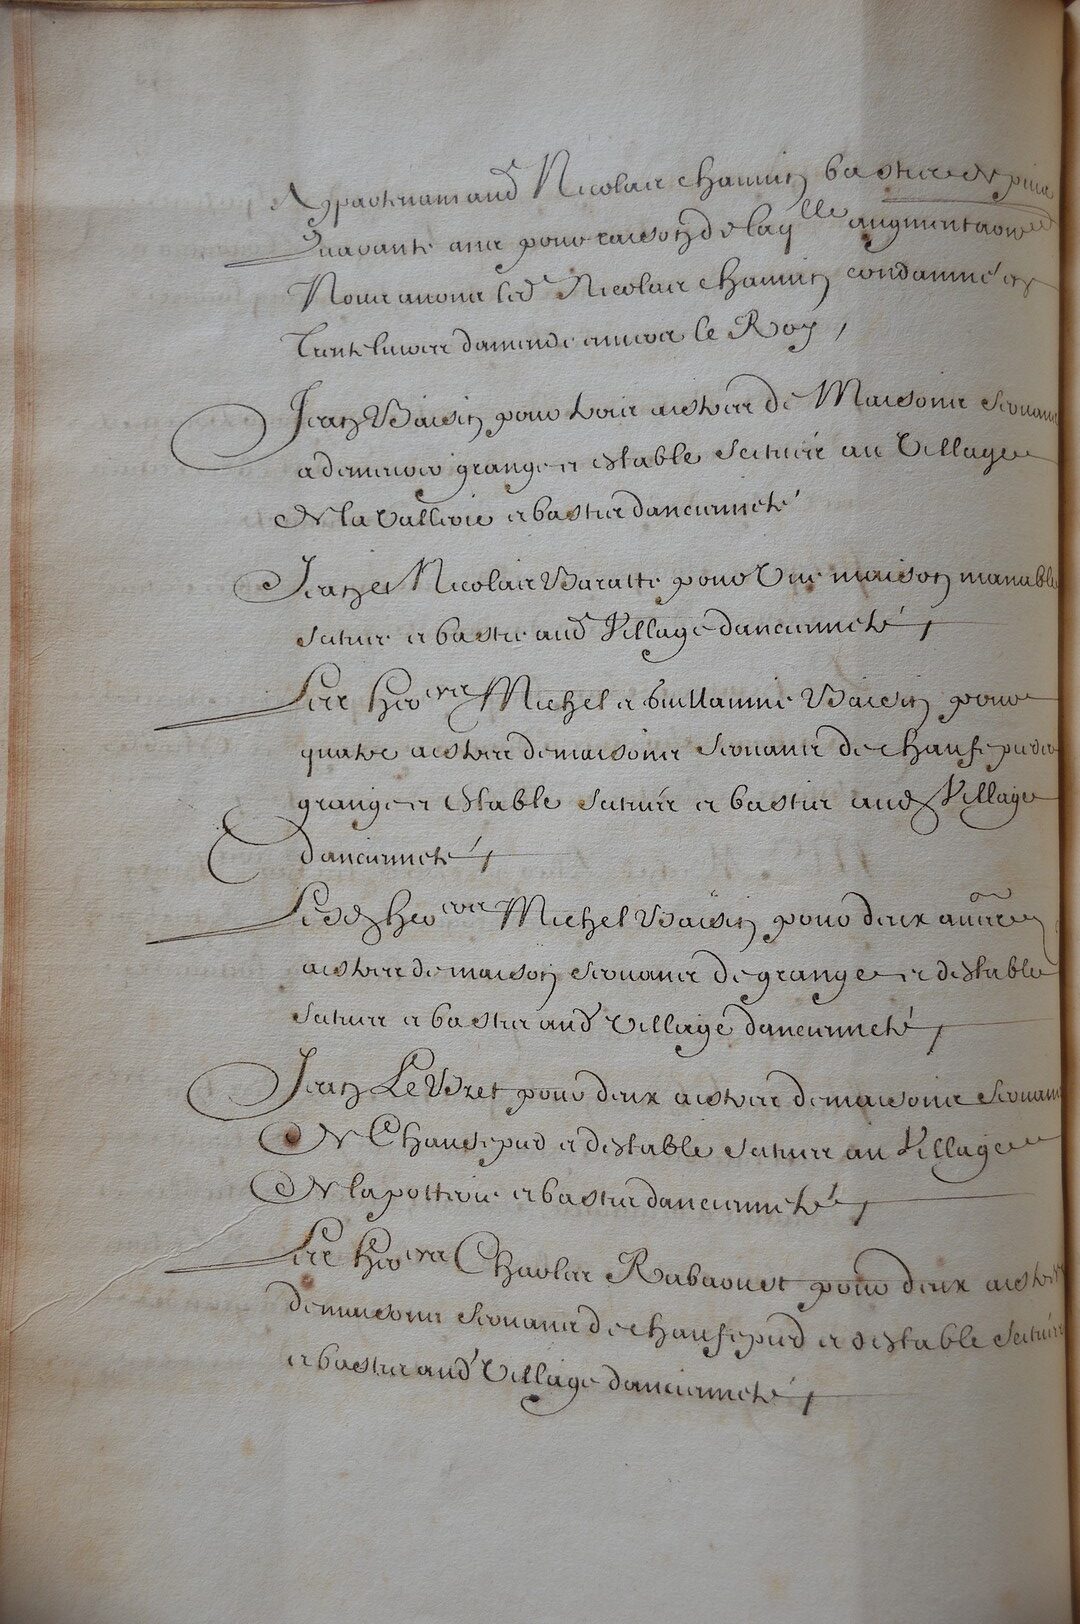 Appartenans aud Nicolas chauvin bastie depuis
Quarante ans pour raison de laq.lle augmentaon
Nous avons led Nicolas chauvin condamné en
trente livres damende envers le Roy,
Jean Vaisin pour trois aistres de Maisons servans
a demeurer grange et estable scituéé au Village
de la Vallerie et bastie dancienneté
Jean et Nicolas Baratte pour Une maison manable
scituee et bastie aud Village dancienneté,
Les her.ers Michel et Guillaume Vaisin pour
quatre aistres de maisons servans de chaufepied
grange et estable scituéé et bastie aud Village
dancienneté,
Lesd her.ers Michel Vaisin pour deux autres
aistres de maison servans de grange et destable
scituee et bastie aud Village dancienneté,
Jean Le Bret pour deux aistres de maisons servans
de Chaufepied et destable scituee au Village
de la potterie et bastie dancienneté,
Les her.ers Charles Rabaoust pour deux aistres
de maisons servans de chaufepied et destable scituéé
et bastie aud Village dancienneté,